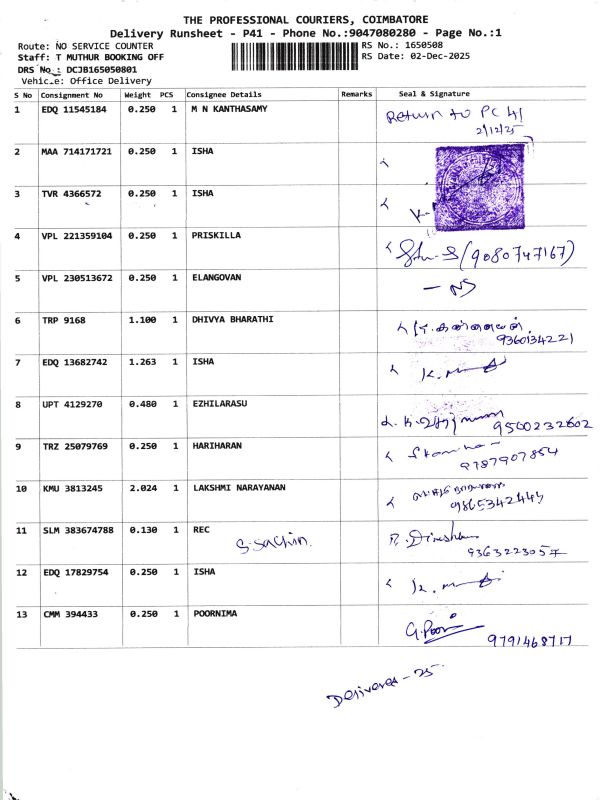 THE PROFESSIONAL COURIERS, COIMBATORE
Delivery Runsheet - P41 - Phone No.:9047080280 - Page No.:1
Route: NO SERVICE COUNTER RS No.: 1650508
Staff: T MUTHUR BOOKING OFF RS Date: 02-Dec-2025
DRS No.: DCJB165050801
Vehicle: Office Delivery
S No Consignment No Weight PCS Consignee Details Remarks Seal & Signature
1 EDQ 11545184 0.250 1 M N KANTHASAMY Return to PC 41
2/12/25
2 MAA 714171721 0.250 1 ISHA
3 TVR 4366572 0.250 1 ISHA
4 VPL 221359104 0.250 1 PRISKILLA (9080747167)
5 VPL 230513672 0.250 1 ELANGOVAN - NS
6 TRP 9168 1.100 1 DHIVYA BHARATHI
9360134221
7 EDQ 13682742 1.263 1 ISHA
8 UPT 4129270 0.480 1 EZHILARASU
9500232602
9 TRZ 25079769 0.250 1 HARIHARAN
9787907854
10 KMU 3813245 2.024 1 LAKSHMI NARAYANAN
9865342445
11 SLM 383674788 0.130 1 REC S.Sachin. R. Dinesh
9363223057
12 EDQ 17829754 0.250 1 ISHA
13 CMM 394433 0.250 1 POORNIMA G. Poorni
9791468717